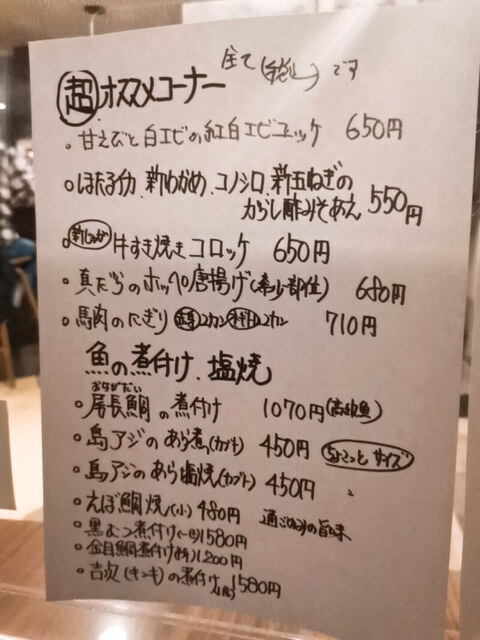 全て(税込)です
超オススメコーナー
・甘えびと白エビの紅白エビユッケ 650円
・ほたるイカ、新わかめ、コノシロ、新玉ねぎの
からし酢みそあえ 550円
・新じゃが牛すき焼きコロッケ 650円
・真だらのホッペ唐揚げ(希少部位) 680円
・馬肉のにぎり 2カン 2カン 710円
魚の煮付け、塩焼
おながだい
・尾長鯛の煮付け 1070円(高級魚)
・島アジのあら煮(カブト) 450円 ちょこっとサイズ
・島アジのあら塩焼(カブト) 450円
・えぼ鯛焼(小) 480円 通ごのみの旨味
・黒むつ煮付け 1580円
・金目鯛煮付け 1200円
・吉次(キンキ)の煮付け 1580円